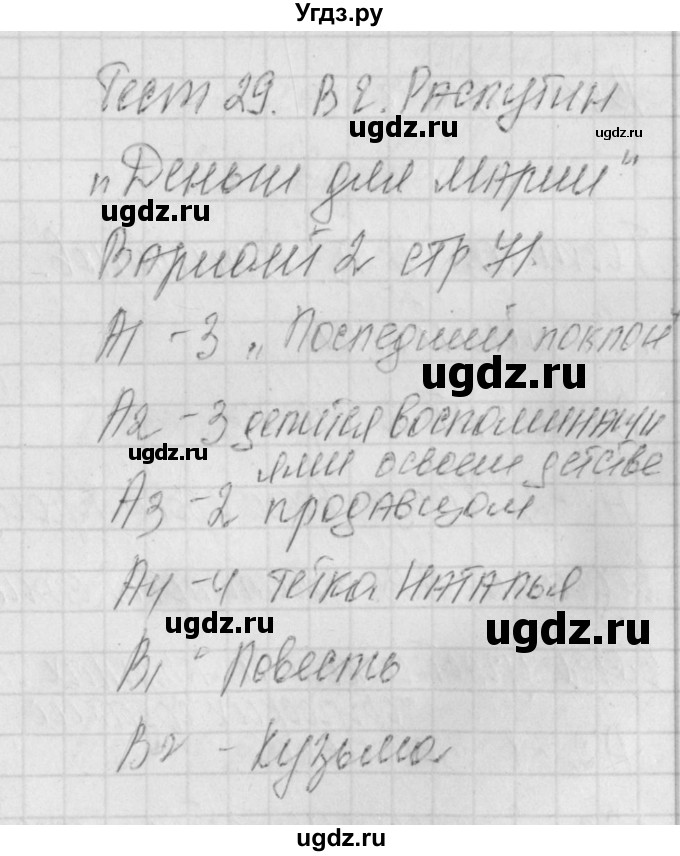 Угдз.ру
Тест 29. В Г. Распутин
ugdz.ru ugdz.ru
„Деньги для Марии“
ugdz.ru
Вариант 2 стр 71.
А1 - 3 „Последний поклон“
ugdz.ru
А2 - 3 делится воспоминани
ugdz.ru
ями о своем детстве
А3 - 2 продавцом
А4 - 4 тетка Наталья
ugdz.ru ugdz.ru
В1 - Повесть
В2 - Кузьма
ugdz.ru